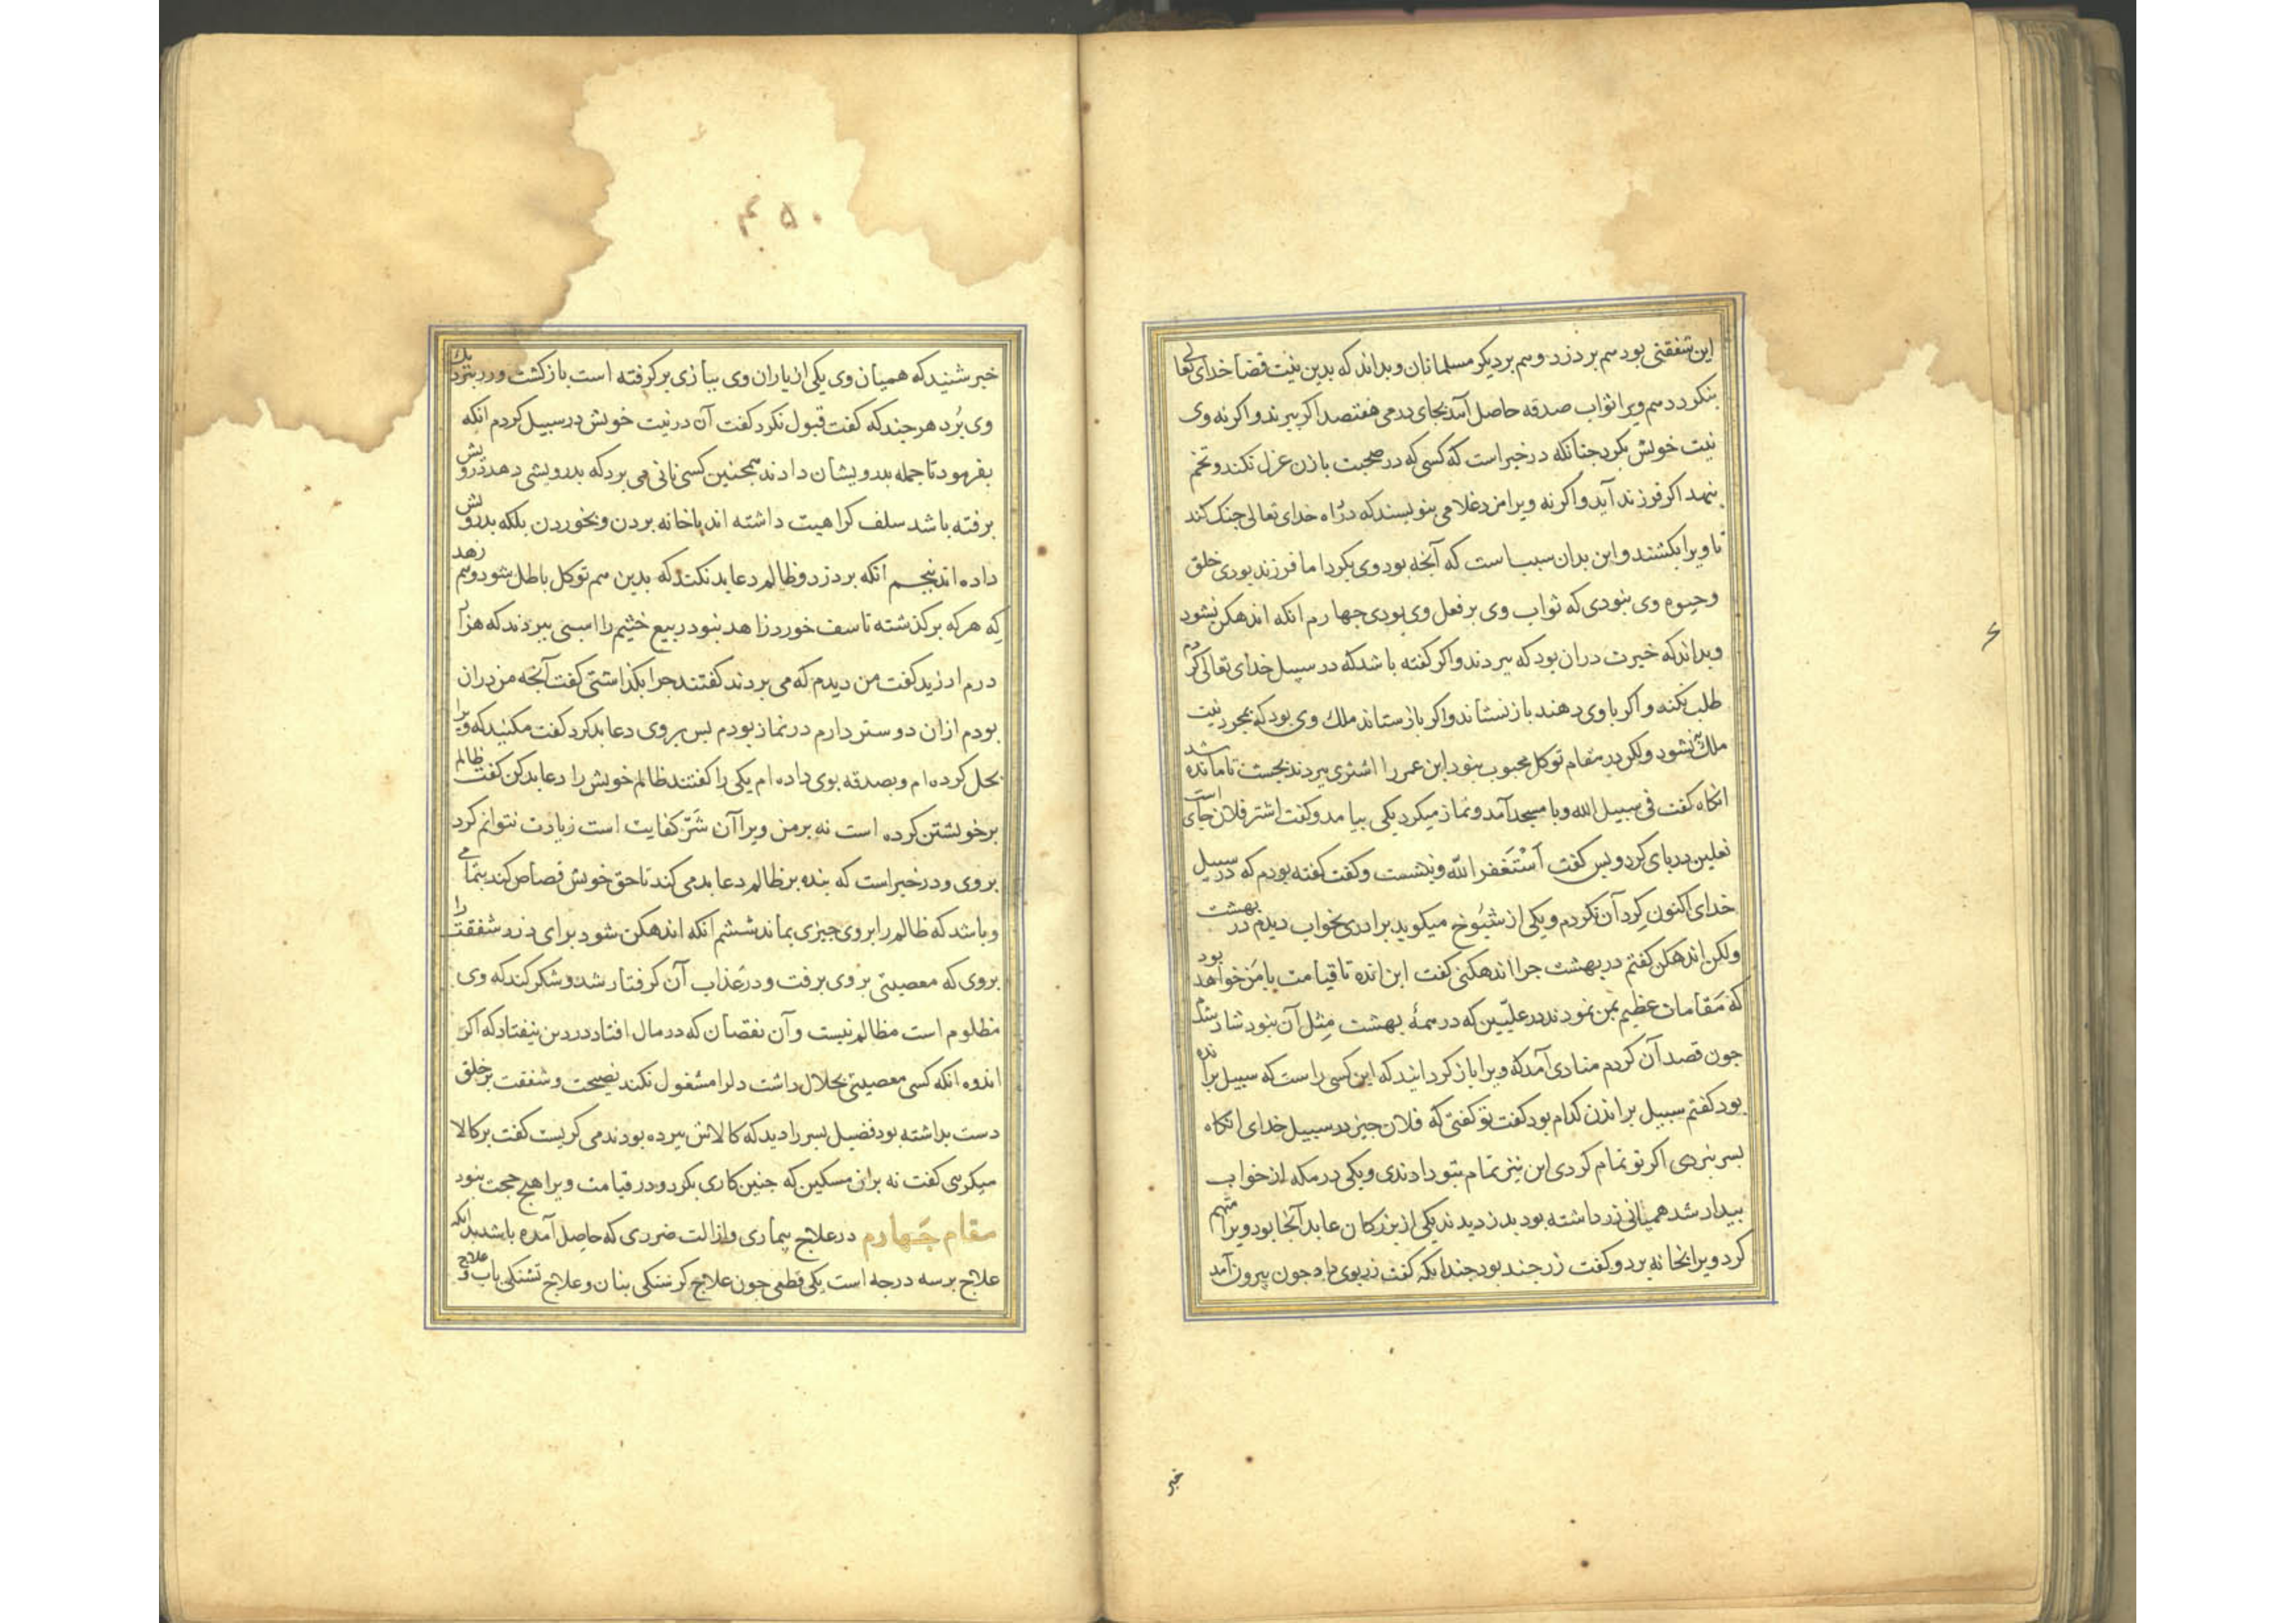 این شفقتی بود هم بر دزد و هم بر دیکر مسلمانان و بداند که بدین نیت قضا خدای تعالی
بنکردد هم ویرا ثواب صدقه حاصل آمد بجای درمی هفتصد اکر ببرند و اکر نه وی
نیت خویش بکرد جنانکه در خبر است که کسی که در صحبت با زن عزل نکند و تخم
بنهد اکر فرزند آید و اکر نه ویرا مزد غلامی بنویسند که در راه خدای تعالی جنک کند
تا ویرا بکشند و این بدان سبب است که آنجه بود وی بکرد اما فرزند بودی خلق
و حیوه وی بنودی که ثواب وی بر فعل وی بودی جهارم انکه اندهکن نشود
و بداند که خیرت دران بود که ببردند و اکر کفته باشد که در سبیل خدای تعالی کردم
طلب نکند و اکر باوی دهند باز نستاند و اکر باز ستاند ملک وی بود که بمجرد نیت
ملک نشود ولکن در مقام توکل محبوب بنود ابن عمر را اشتری ببردند بجست تا مانده شد
انکاه کفت فی سبیل الله و با مسجد آمد و نماز میکرد یکی بیامد و کفت اشتر فلان جای است
نعلین در پای کرد و بس کفت اَسْتَغفر الله و بنشست و کفت کفته بودم که در سبیل
خدای اکنون کِرد آن نکردم و یکی از شیُوخ میکوید برادری بخواب دیدم در بهشت
ولکن اندهکن کفتم در بهشت جرا اندهکنی کفت این انده تا قیامت با من خواهد بود
که مَقامات عظیم بمن نمودند در علیّین که در همهٔ بهشت مِثل آن بنود شاد شدم
جون قصد آن کردم منادی آمد که ویرا باز کردانید که این کسی راست که سبیل براننده
بود کفتم سبیل براندن کدام بود کفت تو کفتی که فلان جیز در سبیل خدای انکاه
بسر نبردی اکر تو تمام کردی این نیز تمام بتو دادندی و یکی در مکه از خواب
بیدار شد همیانی زر داشته بود بدزدیدند یکی از بزرکان عابد آنجا بود ویرا متهم
کرد ویرا بخانه برد و کفت زر جند بود جندانکه کفت زر بوی داد جون بیرون آمد
خبر
۴۵۰
خبر شنید که همیان وی یکی از یاران وی ببازی برکرفته است بازکشت و زر بنزدیک
وی بُرد هر جند که کفت قبول نکرد کفت آن در نیت خویش در سبیل کردم انکه
بفرمود تا جمله بدرویشان دادند همجنین کسی نانی می برد که بدرویشی دهد درویش
برفته باشد سلف کراهیت داشته اند باخانه بردن و بخوردن بلکه بدرویش
داده اند بنجم انکه بر دزد و ظالم دعا بد نکند که بدین هم توکل باطل شود و هم زهد
که هرکه بر کذشته تاسف خورد زاهد بنود ربیع خثیم را اسبی ببردند که هزار
درم ارزید کفت من دیدم که می بردند کفتند جرا بکذاشتی کفت آنجه من دران
بودم ازان دوستر دارم در نماز بودم بس بر وی دعا بد کرد کفت مکنید که ویرا
بحل کرده ام و بصدقه بوی داده ام یکی را کفتند ظالم خویش را دعا بد کن کفت ظالم
بر خویشتن کرده است نه بر من ویرا آن شرّ کفایت است زیادت نتوانم کرد
بر وی و در خبر است که بنده بر ظالم دعا بد می کند تا حق خویش قصاص کند بتمامی
و باشد که ظالم را بر وی جیزی بماند ششم انکه اندهکن شود برای دزد شفقت را
بر وی که معصیتی بر وی برفت و در عذاب آن کرفتار شد و شکر کند که وی
مظلوم است نه ظالم نیست و آن نقصان که در مال افتاد در دین نیفتاد که اکر
اندوه انکه کسی معصیتی بحلال داشت دلرا مشغول نکند نصیحت و شفقت بر خلق
دست بداشته بود فضیل بسر را دید که کالاش ببرده بودند می کریست کفت بر کالا
میکریی کفت نه بران مسکین که جنین کاری بکرد و در قیامت ویرا هیج حجت بنود
مقام جهارم در علاج بیماری و ازالت ضرری که حاصل آمده باشد بدانکه
علاج بر سه درجه است یکی قطعی جون علاج کرسنکی بنان و علاج تشنکی باب و علاج